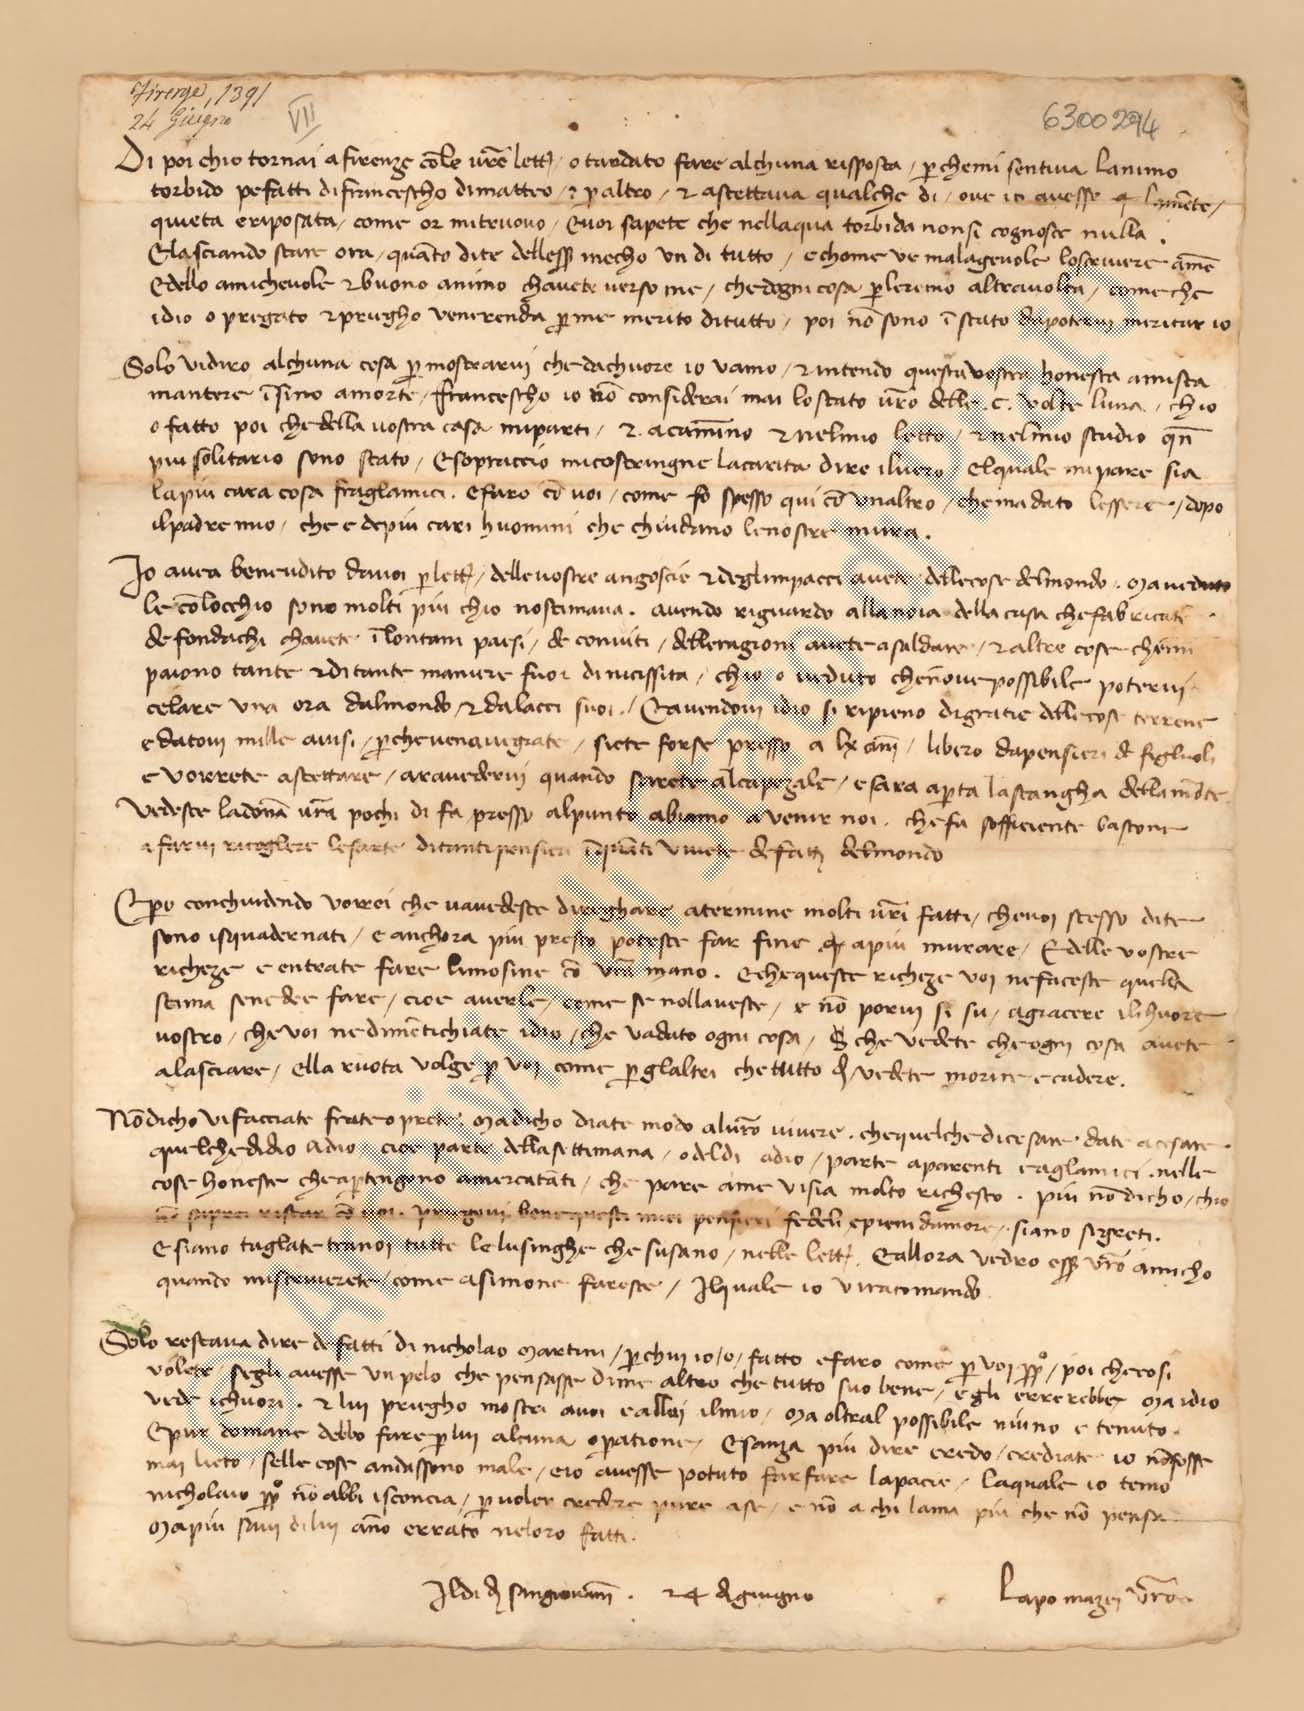 Firenze, 1391
24 Giugno
VII
6300294
Di poi chio tornai a firenze cole vre lett / o tardato fare alchuna risposta / p che mi sentiva lanimo
torbido pe fatti di francescho di matteo / & p altro / & aspettava qualche di / ove io avesse la mente /
quieta e riposata / come or mi truovo / E voi sapete che nellaqua torbida non si cognosce nulla .
E lasciando stare ora / quato dite delless mecho un di tutto / e chome ve malagevole lo scrivere ame
E dello amichevole & buono animo chavete verso me / che dogni cosa p leremo altravolta / come che
idio o pregato & priegho venerenda p me merito di tutto / poi no sono i stato da potervi meritar io
Solo vi diro alchuna cosa p mostrarvi che dachuore io vamo / & intendo questa vostra honesta amista
mantere isino a morte / francescho io no considerai mai lo stato vro delle . c . volte luna / chio
o fatto poi che della vostra casa mi parti / & a camino & nel mio letto / & nel mio studio qn
piu solitario sono stato / E sopraccio mi costringne la carita dire il vero / el quale mi pare sia
la piu cara cosa fra glamici . e faro co voi / come fo spesso qui co unaltro / che ma dato lessere / dopo
il padre mio / che e de piu cari huomini che chiudano le nostre mura .
Io avea ben udito da voi p lett / delle vostre angoscie & deglimpacci avete delle cose del mondo . Ma vedute
le colocchio sono molti piu chio no stimava . avendo riguardo alla noia della casa che fabricate
de fondachi chavete i lontani paesi / de conviti / delle ragioni avete a saldare / & altre cose che mi
paiono tante & di tante maniere fuor di nicissita / chio o veduto che no ve possibile potervi
celare una ora dal mondo / & da lacci suoi . E avendovi idio si ripieno di gratie delle cose terrene
e datovi mille avisi / p che venavegiate / siete forse presso a lx ani / libero da pensieri di figliuoli
e vorrete aspettare / a ravedervi quando sarete al capezale / e sara apta la stangha della morte
Vedeste la dona vra pochi di fa presso al punto abiamo a venir noi . che fa sofficiente bastone
a farvi ricogliere le sarte di tanti pensieri i quati vivete de fatti del mondo
E po conchiudendo vorrei che vavedeste di reghare a termine molti vri fatti / che voi stesso dite
sono isquadernati / e anchora piu presto poteste far fine a piu murare / E delle vostre
richeze e entrate fare limosine co vra mano . E che queste richeze voi ne faceste quella
stima se ne dee fare / cioe averle / come se nollaveste / e no porvi si su / a giacere il chuore
vostro / che voi ne dimentichiate idio / che va dato ogni cosa / E che vedete che ogni cosa avete
a lasciare / ella ruota volge p voi come p glaltri che tutto di / vedete morire e cadere .
No dicho vi facciate frate o prete . Ma dicho diate modo al vro vivere . che quel che di cesare date a cesare .
quel che di dio a dio cioe parte della settimana / o del di a dio / parte a parenti e a glamici . nelle
cose honeste che aptengono a mercatati / che pare a me vi sia molto richesto . Piu no dicho / chio
no saprei ristar co voi . priegovi bene questi miei pensieri fedeli e pieni damore / siano sigreti .
E siano tagliate tra noi tutte le lusinghe che susano / nelle lett / E allora vedro ess vro amicho
quando mi scriverete / come a simone fareste / Il quale io vi racomando
Solo restava dire de fatti di nicholao Martini / p chui io / o / fatto e faro come p voi pp / poi che cosi
volete / segli avesse un pelo che pensasse di me altro che tutto suo bene / egli errerebbe Ma idio
vede i chuori . & lui priegho mostri a voi e a llui il mio / Ma oltral possibile niuno e tenuto .
E pur domane debbo fare p lui alcuna opatione / E sanza piu dire credo / crediate io no fosse
mai lieto / selle cose andassono male / e io avesse potuto far fare la pacie / la quale io temo
nicholaio pp no abbi isconcia / p voler credere pure a se / e no a chi lama piu che no pensa
Ma piu savi di lui ano errato ne loro fatti .
Il di di san giovani . 24 di giugno
Lapo mazei vro